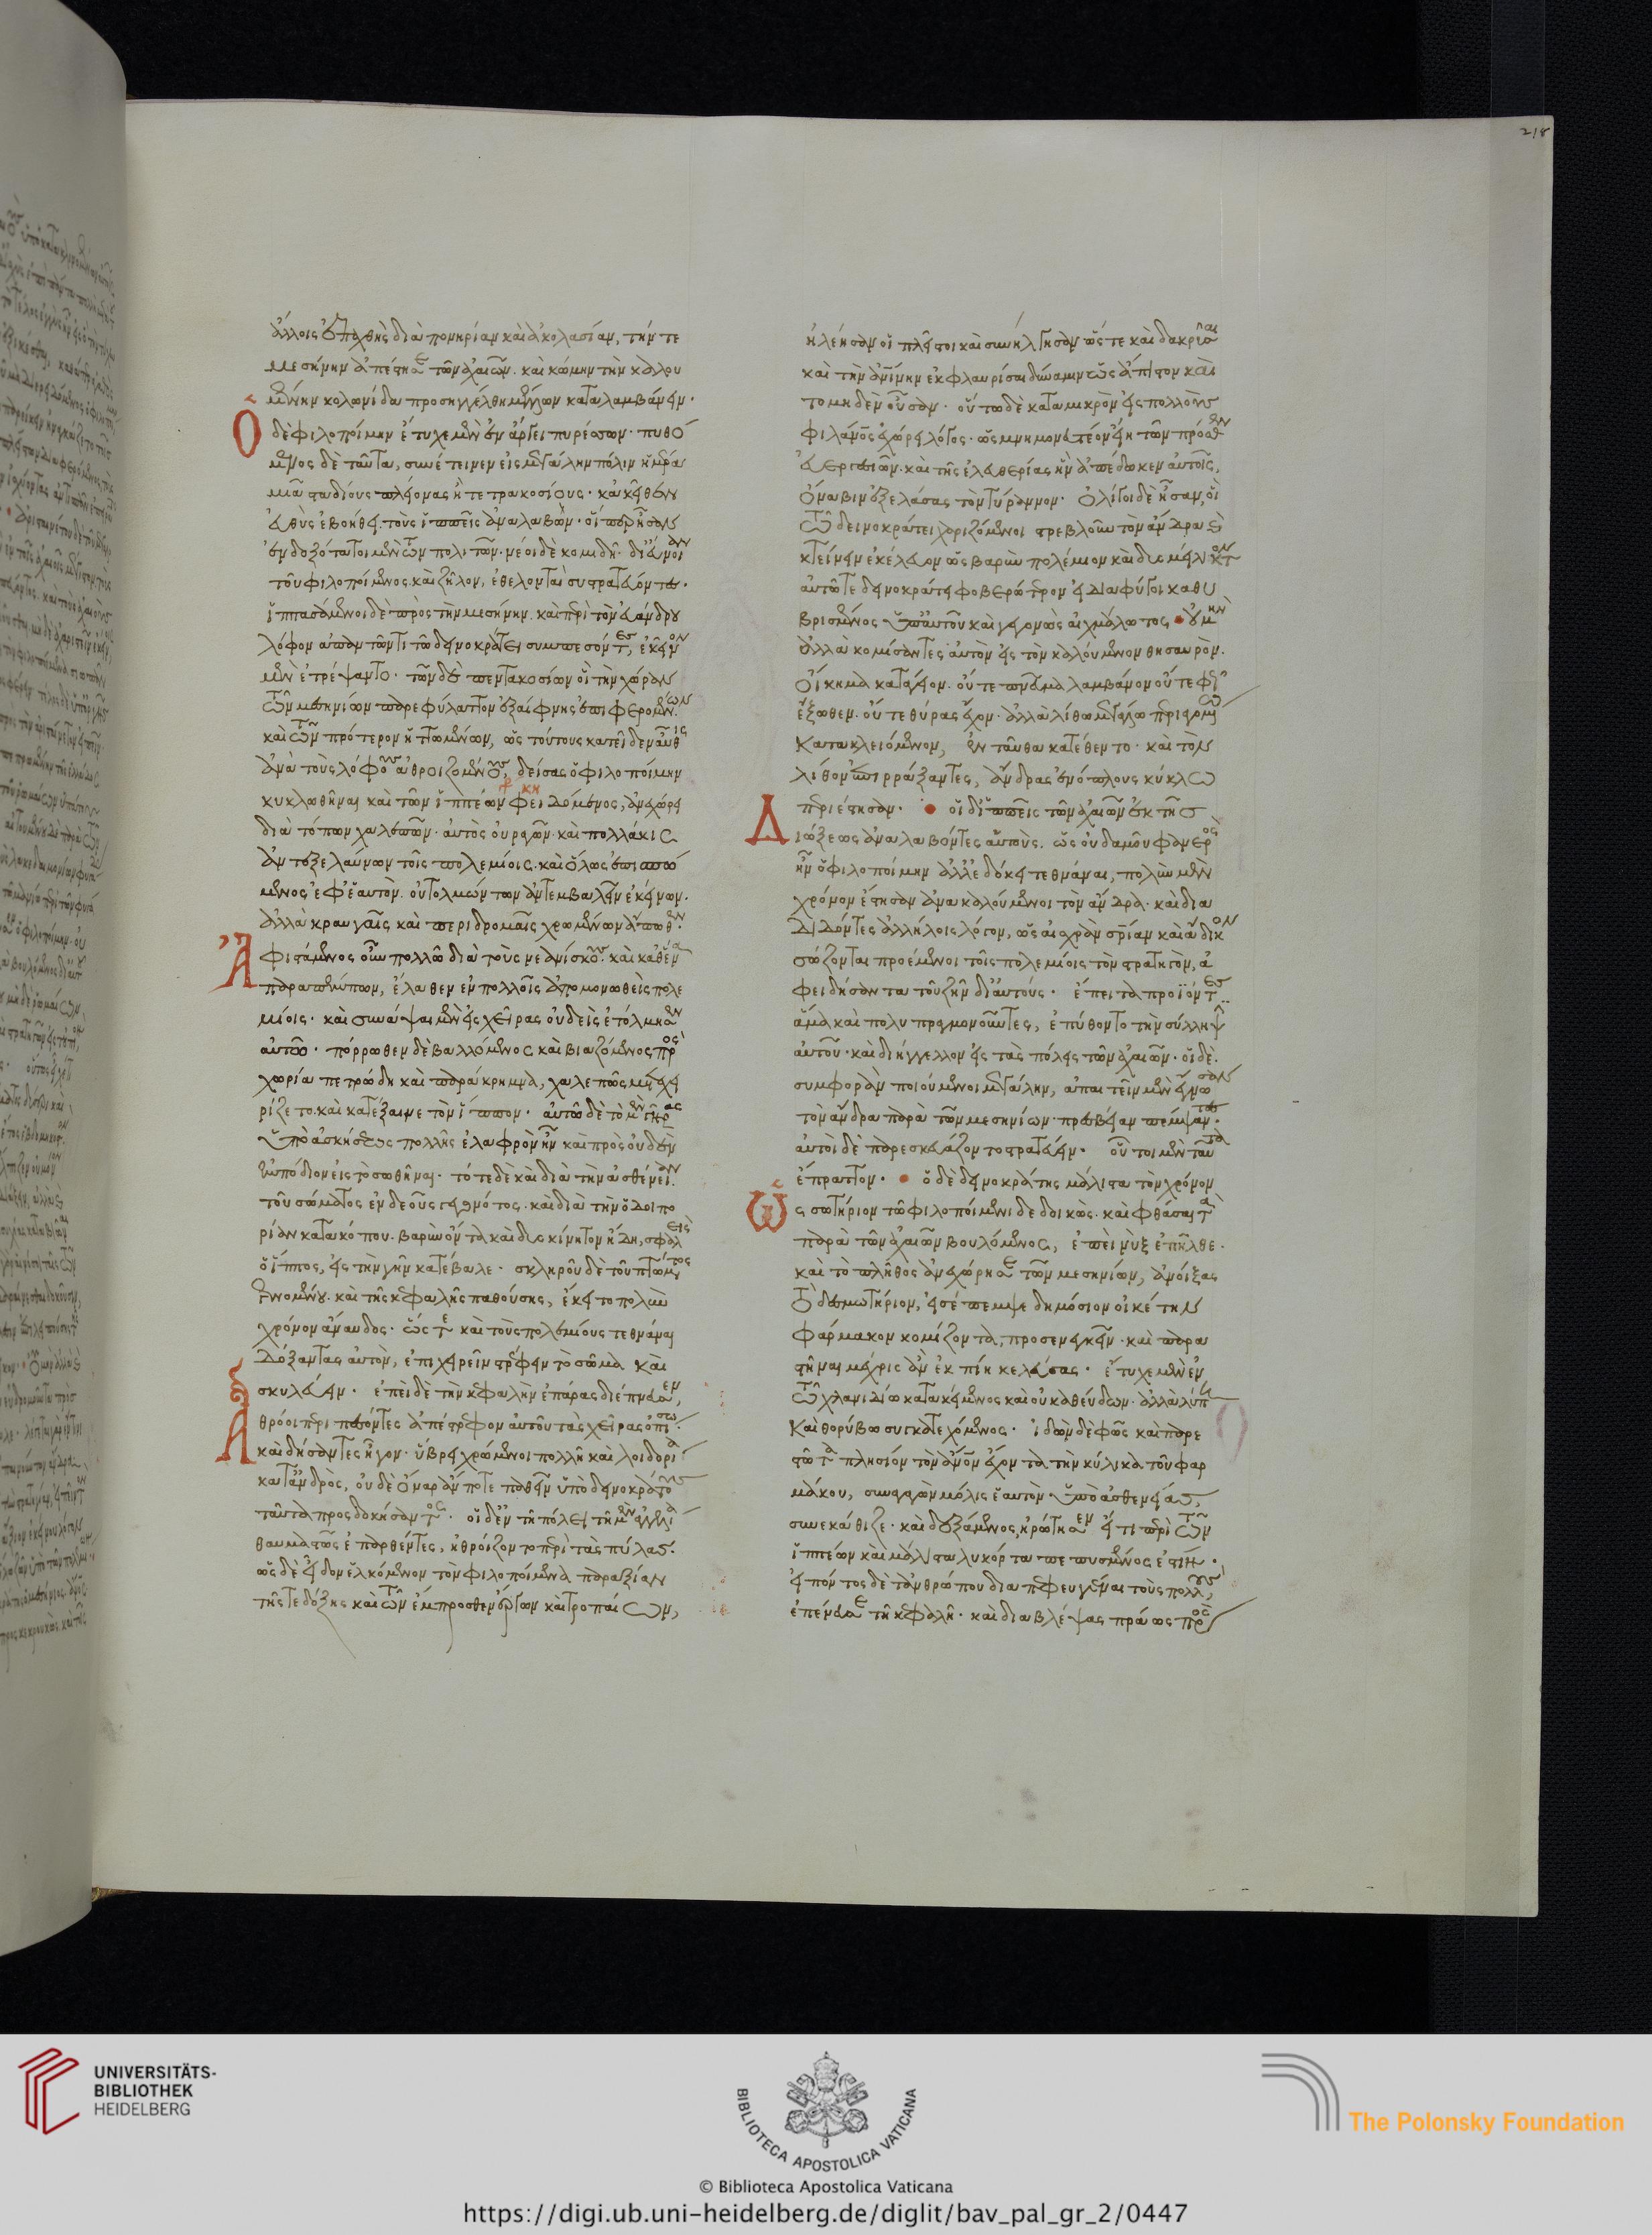 ἄλλοις ἐπαχθὴς διὰ πονηρίαν καὶ ἀκολασίαν, τήν τε
μεσήνην ἀπέστησε τῶν ἀχαιῶν. καὶ κώμην τὴν καλου
μένην κολωνίδα προσηγγέλθη μέλλων καταλαμβάνειν.
Ὁ δὲ φιλοποίμην ἔτυχε μὲν ἐν ἄργει πυρέσσων· πυθό
μενος δὲ ταῦτα, συνέτεινεν εἰς μεγάλην πόλιν ἡμέρα
μιᾶ σταδίους πλείονας ἢ τετρακοσίους· κἀκεῖθεν
εὐθὺς ἐβοήθει τοὺς ἱππεῖς ἀναλαβών· οἵπερ ἦσαν
ἐνδοξότατοι μὲν τῶν πολιτῶν· νέοι δὲ κομιδῆ· δι' εὔνοιαν
τοῦ φιλοποίμενος καὶ ζῆλον, ἐθελονταὶ συστρατεύοντες.
ἱππασάμενοι δὲ πρὸς τὴν μεσήνην καὶ περὶ τὸν εὐάνδρου
λόφον ἀπαντῶντι τῶ δεινοκράτει συμπεσόντες, ἐκεῖνον
μὲν ἐτρέψαντο· τῶν δὲ πεντακοσίων οἳ τὴν χώραν
τῶν μεσηνίων παρεφύλαττον ἐξαίφνης ἐπιφερομένων.
καὶ τῶν πρότερον ἡττωμένων, ὡς τούτους κατεῖδεν αὖθις
ἀνὰ τοὺς λόφους ἀθροιζομένους, δείσας ὁ φιλοποίμην
κυκλωθῆναι καὶ τῶν ἱππέων φειδόμενος, ἀνεχώρει
διὰ τόπων χαλεπῶν· αὐτὸς οὐραγῶν· καὶ πολλάκις
ἀντεξελαύνων τοῖς πολεμίοις· καὶ ὅλως ἐπισπώ
μενος ἐφ' ἑαυτόν· οὐ τολμώντων ἀντεμβαλεῖν ἐκείνων.
ἀλλὰ κραυγαῖς καὶ περιδρομαῖς χρωμένων ἄπωθεν.
Ἀφιστάμενος οὖν πολλῶ διὰ τοὺς νεανίσκους· καὶ καθ' ἕνα
παραπέμπων, ἔλαθεν ἐν πολλοῖς ἀπομονωθεὶς πολε
μίοις· καὶ συνάψαι μὲν εἰς χεῖρας οὐδεὶς ἐτόλμησεν
αὐτῶ· πόρρωθεν δὲ βαλλόμενος καὶ βιαζόμενος πρὸς
χωρία πετρώδη καὶ παράκρημνα, χαλεπῶς μετεχει
ρίζετο καὶ κατέξαινε τὸν ἵππον· αὐτῶ δὲ τὸ μὲν γῆρας
ὑπὸ ἀσκήσεως πολλῆς ἐλαφρὸν ἦν καὶ πρὸς οὐδὲν
ἐμπόδιον εἰς τὸ σωθῆναι· τότε δὲ καὶ διὰ τὴν ἀσθένειαν
τοῦ σώματος ἐνδεοῦς γεγονότος· καὶ διὰ τὴν ὁδοιπο
ρίαν κατακόπου· βαρὺν ὄντα καὶ δυσκίνητον ἤδη, σφαλεὶς
ὁ ἵππος, εἰς τὴν γῆν κατέβαλε· σκληροῦ δὲ τοῦ πτώματος
γενομένου· καὶ τῆς κεφαλῆς παθούσης, ἔκειτο πολὺν
χρόνον ἄναυδος· ὥστε καὶ τοὺς πολεμίους τεθνάναι
δόξαντας αὐτὸν, ἐπιχειρεῖν στρέφειν τὸ σῶμα καὶ
σκυλεύειν· ἐπεὶ δὲ τὴν κεφαλὴν ἐπάρας διέβλεψεν,
Ἀθρόοι περιπεσόντες ἀπέστρεφον αὐτοῦ τὰς χεῖρας ὀπίσω.
καὶ δήσαντες ἦγον· ὕβρει χρώμενοι πολλῆ καὶ λοιδορία
κατ' ἀνδρὸς, οὐδὲ ὄναρ ἄν ποτε παθεῖν ὑπὸ δεινοκράτους
ταῦτα προσδοκήσαντος· οἱ δ' ἐν τῆ πόλει τῆ μὲν ἀγγελία
θαυμαστῶς ἐπαρθέντες, ἠθροίζοντο περὶ τὰς πύλας.
ὡς δὲ εἶδον ἑλκόμενον τὸν φιλοποίμενα παρ' ἀξίαν
τῆς τε δόξης καὶ τῶν ἔμπροσθεν ἔργων καὶ τροπαίων,
ἠλέησαν οἱ πλεῖστοι καὶ συνήλγησαν ὥστε καὶ δακρῦσαι
καὶ τὴν ἀνθρωπίνην ἐκφλαυρίσαι δύναμιν ὡς ἄπιστον καὶ
τὸ μηδὲν οὖσαν· οὕτω δὲ κατὰ μικρὸν εἰς πολλοὺς
φιλάνθρωπος ἐχώρει λόγος· ὡς μνημονευτέον εἴη τῶν πρόσθεν
εὐεργεσιῶν· καὶ τῆς ἐλευθερίας ἣν ἀπέδωκεν αὐτοῖς,
ὄναβιν ἐξελάσας τὸν τύραννον· ὀλίγοι δὲ ἦσαν, οἳ
τῶ δεινοκράτει χαριζόμενοι στρεβλοῦν τὸν ἄνδρα καὶ
κτείνειν ἐκέλευον ὡς βαρὺν πολέμιον καὶ δυσμείλικτον
αὐτῶ τε δεινοκράτει φοβερώτερον εἰ διαφύγοι καθυ
βρισμένος ὑπ' αὐτοῦ καὶ γεγονὼς αἰχμάλωτος· οὐ μὴν
ἀλλὰ κομίσαντες αὐτὸν εἰς τὸν καλούμενον θησαυρόν.
οἴκημα κατάγειον· οὔτε πνεῦμα λαμβάνον οὔτε φῶς
ἔξωθεν· οὔτε θύρας ἔχον· ἀλλὰ λίθω μεγάλω περιαγομένω
κατακλειόμενον, ἐνταῦθα κατέθεντο· καὶ τὸν
λίθον ἐπιρράξαντες, ἄνδρας ἐνόπλους κύκλω
περιέστησαν· οἱ δ' ἱππεῖς τῶν ἀχαιῶν ἐκ τῆς
Διώξεως ἀναλαβόντες αὑτοὺς· ὡς οὐδαμοῦ φανερὸς
ἦν ὁ φιλοποίμην ἀλλ' ἐδόκει τεθνάναι, πολὺν μὲν
χρόνον ἔστησαν ἀνακαλούμενοι τὸν ἄνδρα· καὶ δια
διδόντες ἀλλήλοις λόγον, ὡς αἰσχρὰν σωτηρίαν καὶ ἄδικον
σώζονται προέμενοι τοῖς πολεμίοις τὸν στρατηγὸν, ἀ
φειδήσαντα τοῦ ζῆν δι' αὐτούς· ἔπειτα προϊόντες
ἅμα καὶ πολυπραγμονοῦντες, ἐπύθοντο τὴν σύλληψιν
αὐτοῦ· καὶ διήγγελλον εἰς τὰς πόλεις τῶν ἀχαιῶν· οἱ δὲ
συμφορὰν ποιούμενοι μεγάλην, ἀπαιτεῖν μὲν ἔγνωσαν
τὸν ἄνδρα παρὰ τῶν μεσηνίων πρεσβείαν πέμψαντες·
αὐτοὶ δὲ παρεσκευάζοντο στρατεύειν· οὗτοι μὲν ταῦτα
ἔπραττον· ὁ δὲ δεινοκράτης μάλιστα τὸν χρόνον
Ὡς σωτήριον τῶ φιλοποίμενι δεδοικὼς· καὶ φθάσαι τὰ
παρὰ τῶν ἀχαιῶν βουλόμενος, ἐπεὶ νὺξ ἐπῆλθε·
καὶ τὸ πλῆθος ἀνεχώρησε τῶν μεσηνίων, ἀνοίξας
τὸ δεσμωτήριον, εἰσέπεμψε δημόσιον οἰκέτην
φάρμακον κομίζοντα, προσενεγκεῖν· καὶ παρα
στῆναι μέχρις ἂν ἐκπίη κελεύσας· ἔτυχε μὲν ἐν
τῶ χλανιδίω κατακείμενος καὶ οὐ καθεύδων· ἀλλὰ λύπη
καὶ θορύβω συγκατεχόμενος· ἰδὼν δὲ φῶς καὶ παρε
στῶτα πλησίον τὸν ἄνθρωπον ἔχοντα τὴν κύλικα τοῦ φαρ
μάκου, συναγαγὼν μόλις ἑαυτὸν ὑπὸ ἀσθενείας,
συνεκάθιζε· καὶ δεξάμενος, ἠρώτησεν εἴ τι περὶ τῶν
ἱππέων καὶ μάλιστα λυκόρτα πεπυσμένος ἐστίν·
εἰπόντος δὲ τοῦ ἀνθρώπου διαπεφευγέναι τοὺς πολλούς,
ἐπένευσε τῆ κεφαλῆ· καὶ διαβλέψας πράως πρὸς
218
UNIVERSITÄTS-
BIBLIOTHEK
HEIDELBERG
BIBLIOTECA APOSTOLICA VATICANA
The Polonsky Foundation
© Biblioteca Apostolica Vaticana
https://digi.ub.uni-heidelberg.de/diglit/bav_pal_gr_2/0447